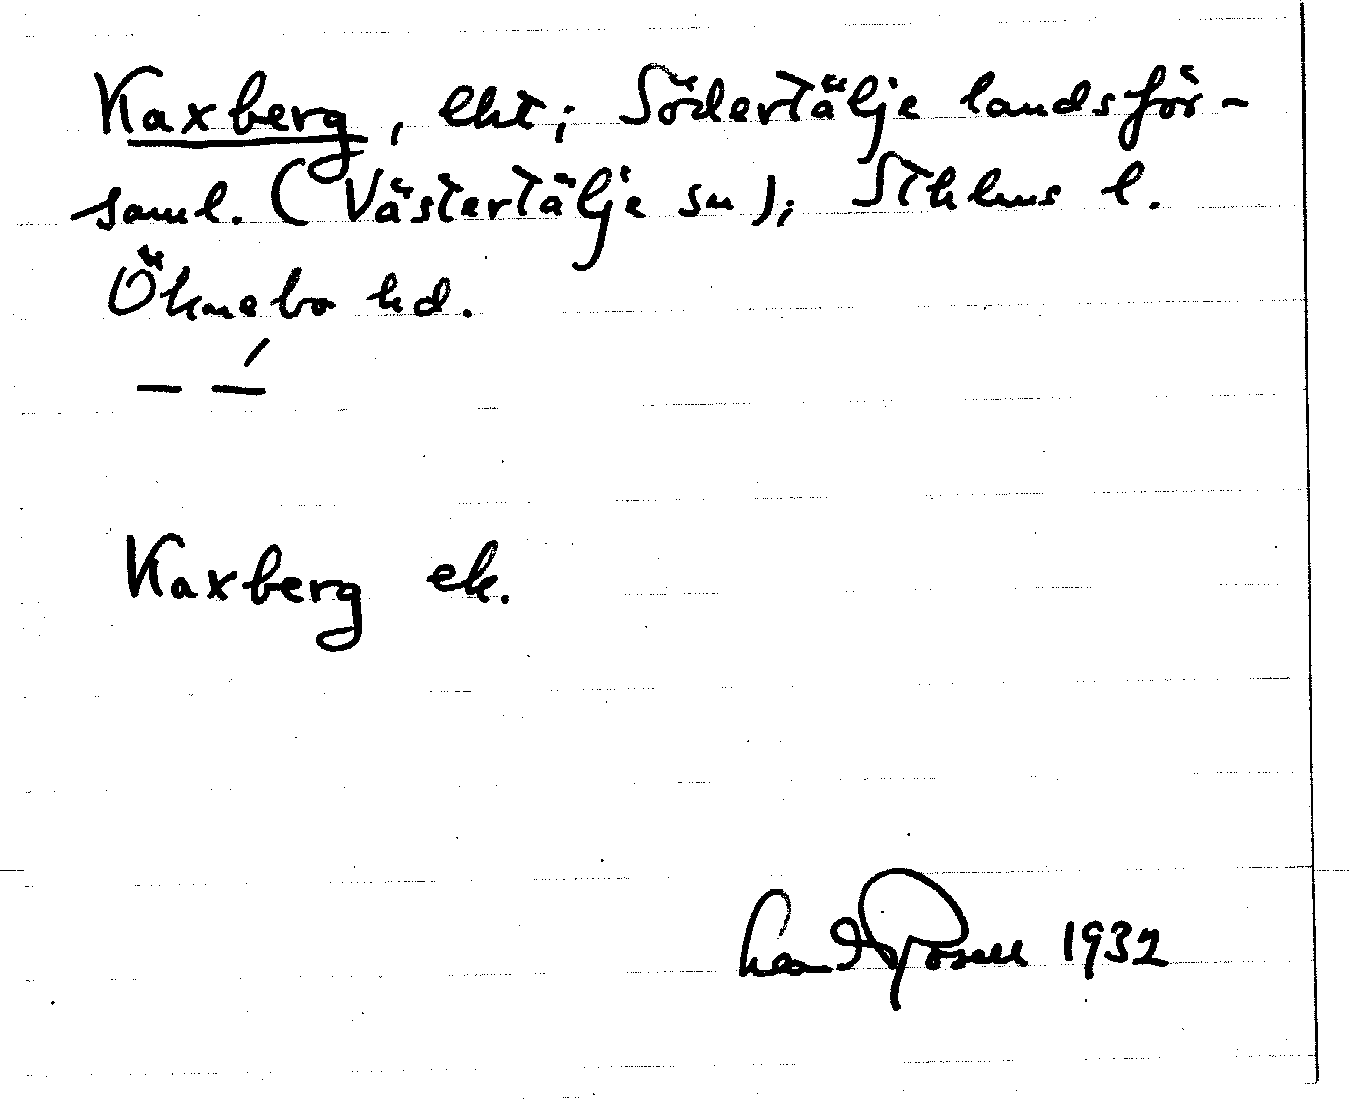 Kaxberg, lht; Södertälje landsför-
saml. (Västertälje sn); Sthlms l.
Öknebo hd.
Kaxberg ek.
Rosell 1932